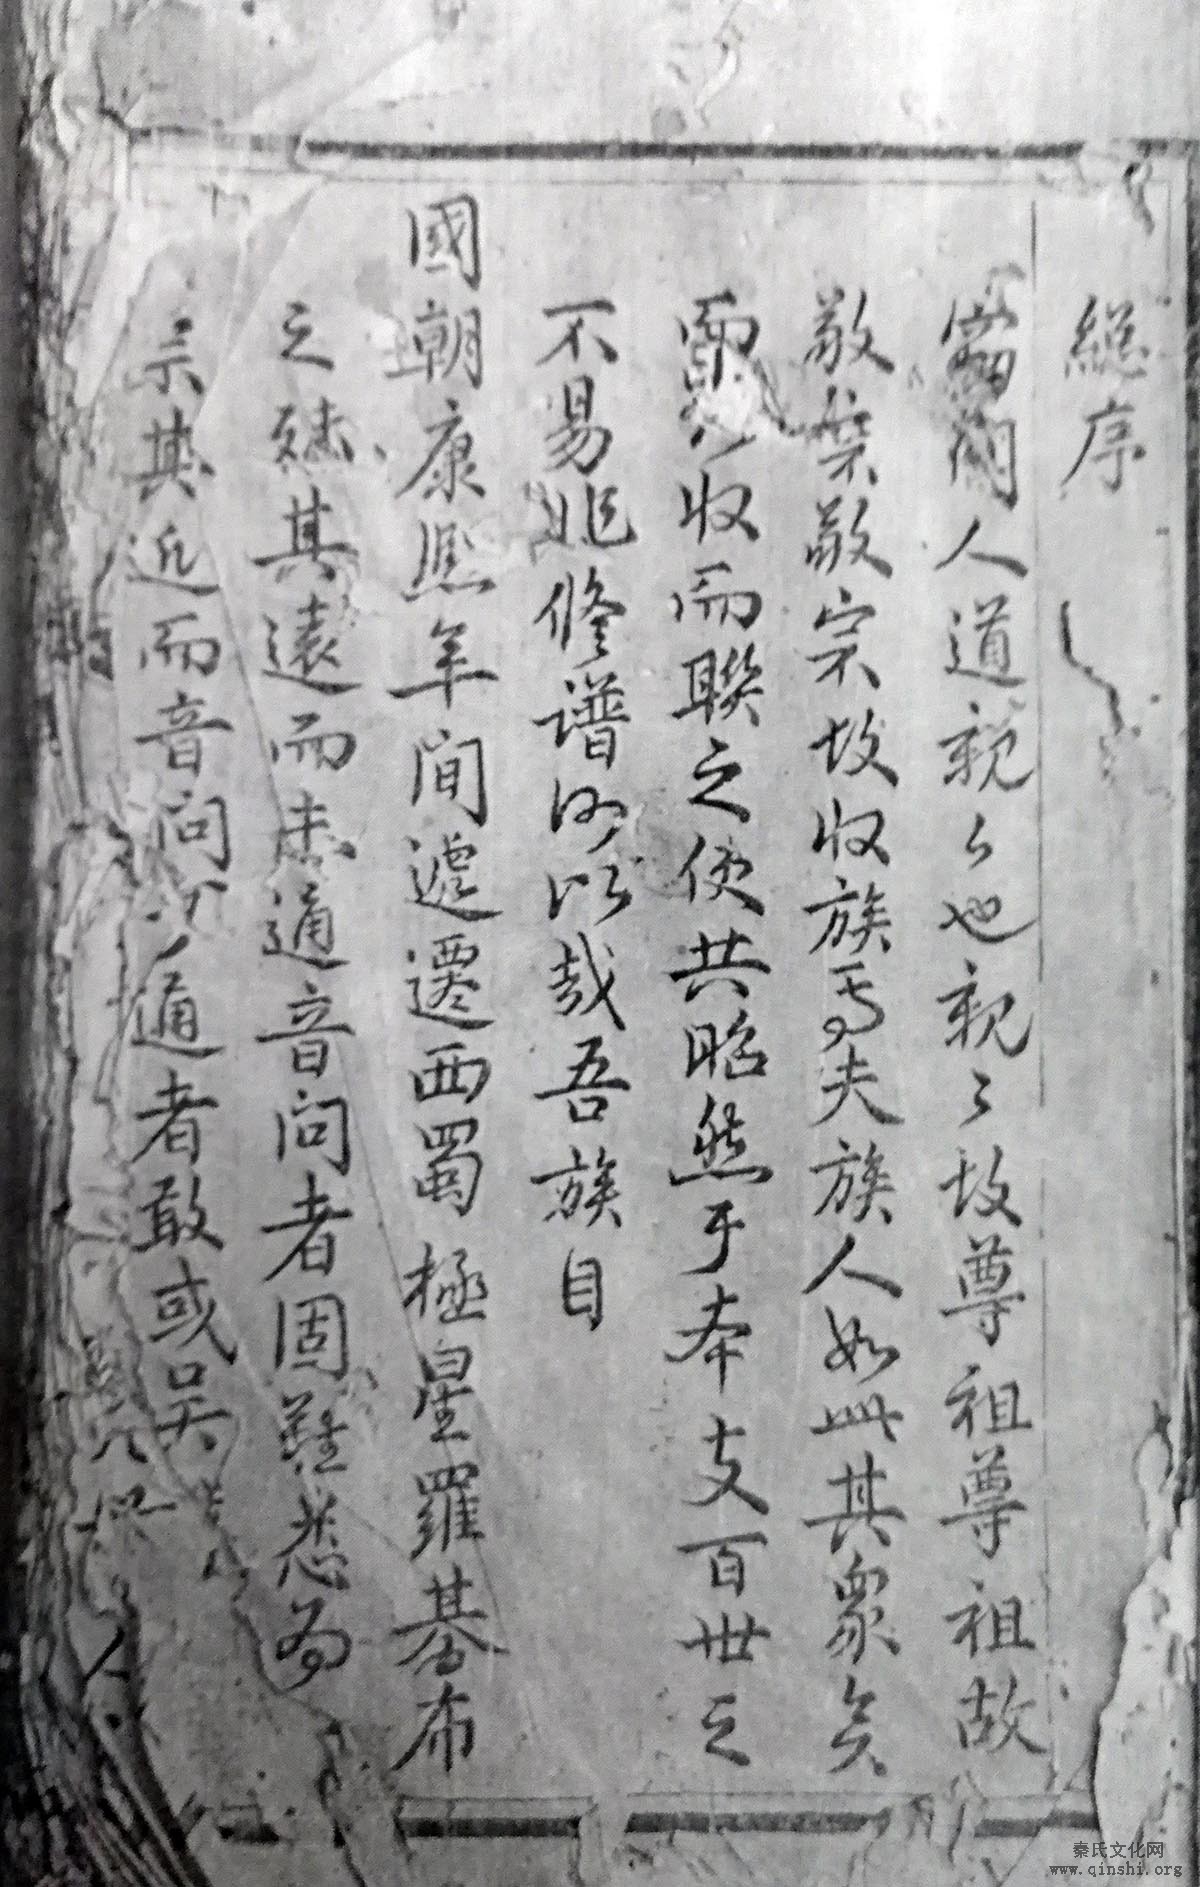 總序
窃聞人道親々也親々故尊祖尊祖故
敬宗敬宗故收族焉夫族人如此其衆矣
收而聯之使共昭然于本支百世之
不易非修譜何以哉吾族自
國朝康熙年間遞遷西蜀極星羅碁布
之其遠而未通音问者固難悉為
宗其近而音问可通者敢或
秦氏文化网
www.qinshi.org